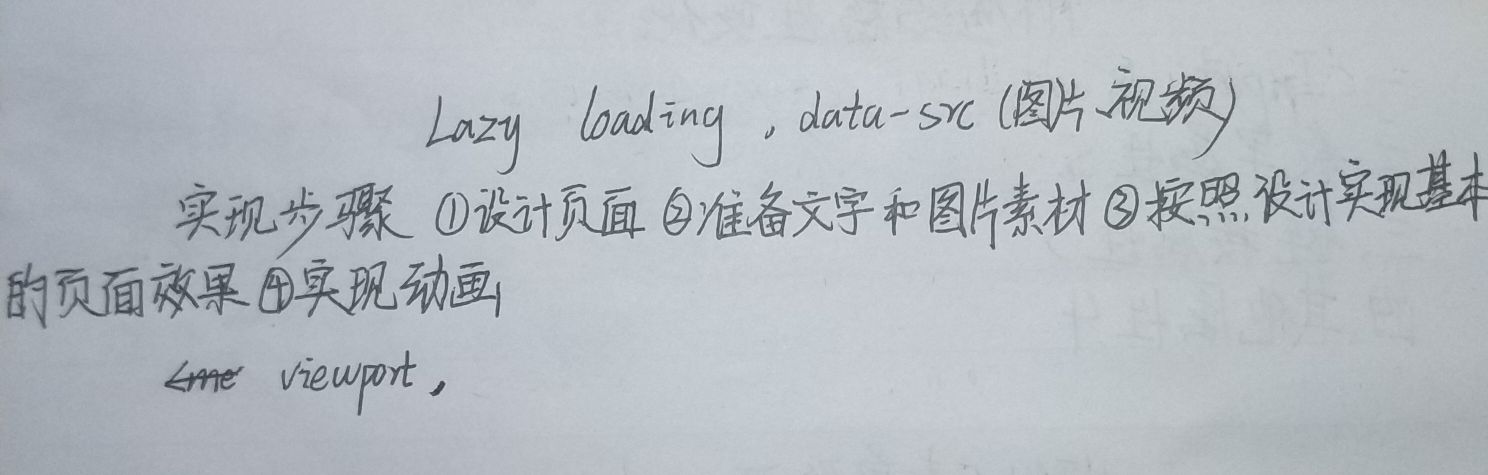 Lazy loading , data-src (图片、视频)
实现步骤 ①设计页面 ②准备文字和图片素材 ③按照设计实现基本
的页面效果 ④实现动画
<me viewport ,